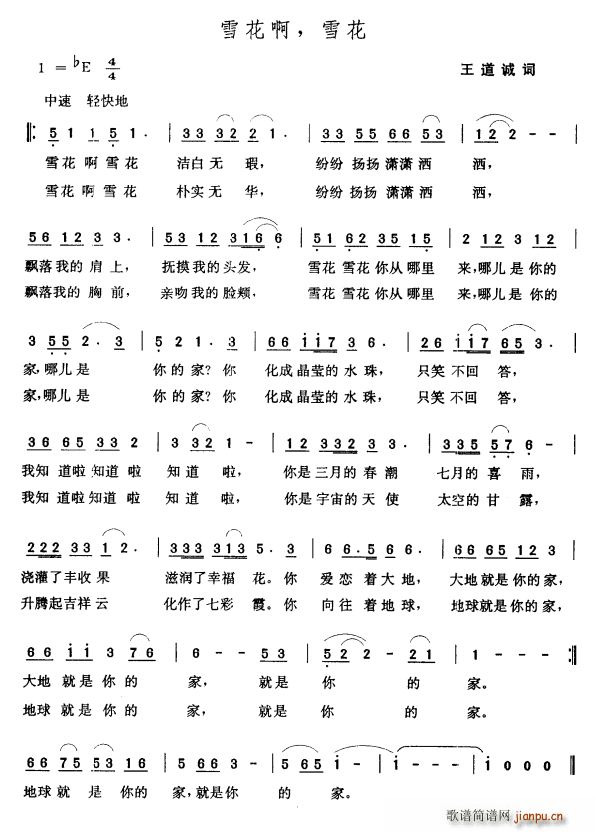 雪花啊，雪花
1 = ♭E 4/4
王道诚词
中速 轻快地
5 1 1 5 1 · 33 32 21 · 33 55 66 53 122 - -
雪花 啊 雪花 洁白 无 瑕， 纷纷 扬扬 潇潇 洒 洒，
雪花 啊 雪花 朴实 无 华， 纷纷 扬扬 潇潇 洒 洒，
56 12 3 3 · 33 12 316 6 · 51 62 35 15 2 12 3 12
飘落 我的 肩 上， 抚摸 我的 头发， 雪花 雪花 你从 哪里 来，哪儿 是 你的
飘落 我的 胸 前， 亲吻 我的 脸颊， 雪花 雪花 你从 哪里 来，哪儿 是 你的
3 55 2 · 3 5 21 · 3 66 ii7 3 6 · 26 ii7 65 3 ·
家，哪儿 是 你 的 家？你 化成 晶莹的 水 珠， 只笑 不回 答，
家，哪儿 是 你 的 家？你 化成 晶莹的 水 珠， 只笑 不回 答，
36 65 33 2 3 321 - 12 333 3 2 · 333 5 57 6 ·
我知 道啦 知道 啦 知道 啦， 你是 三月的 春 潮 七月的 喜 雨，
我知 道啦 知道 啦 知道 啦， 你是 宇宙的 天 使 太空的 甘 露，
222 2 33 1 2 · 333 3 313 5 · 3 66 · 5 66 · 56 66 53 2
浇灌了 丰收 果 滋润了 幸福 花。你 爱恋 着 大地， 大地 就是 你的 家，
升腾起 吉祥 云 化作了 七彩 霞。你 向往 着 地球， 地球 就是 你的 家，
66 i i 3 76 6 - - 53 52 2 - 21 1 - - -
大地 就是 你的 家， 就是 你 的 家。
地球 就是 你的 家， 就是 你 的 家。
66 76 75 53 16 5 66 3 - 5 65 i · i i - - - i 0 0 0
地球 就 是 你的 家，就是 你 的 家。
歌谱简谱网
jianpu.cn